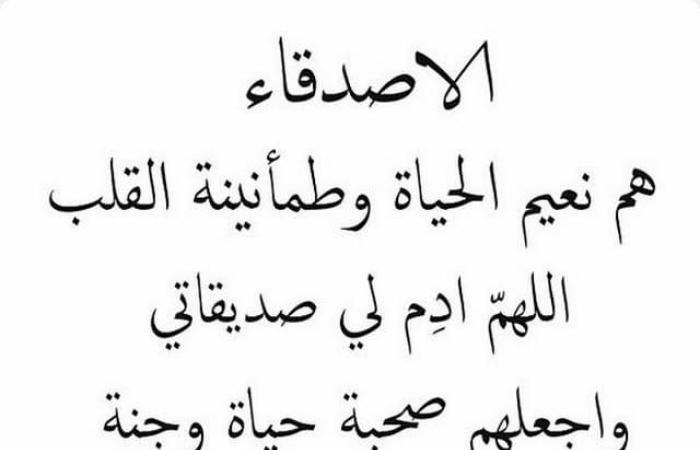 الاصدقاء
هم نعيم الحياة وطمأنينة القلب
اللهمّ ادِم لي صديقاتي
واجعلهم صحبة حياة وجنة